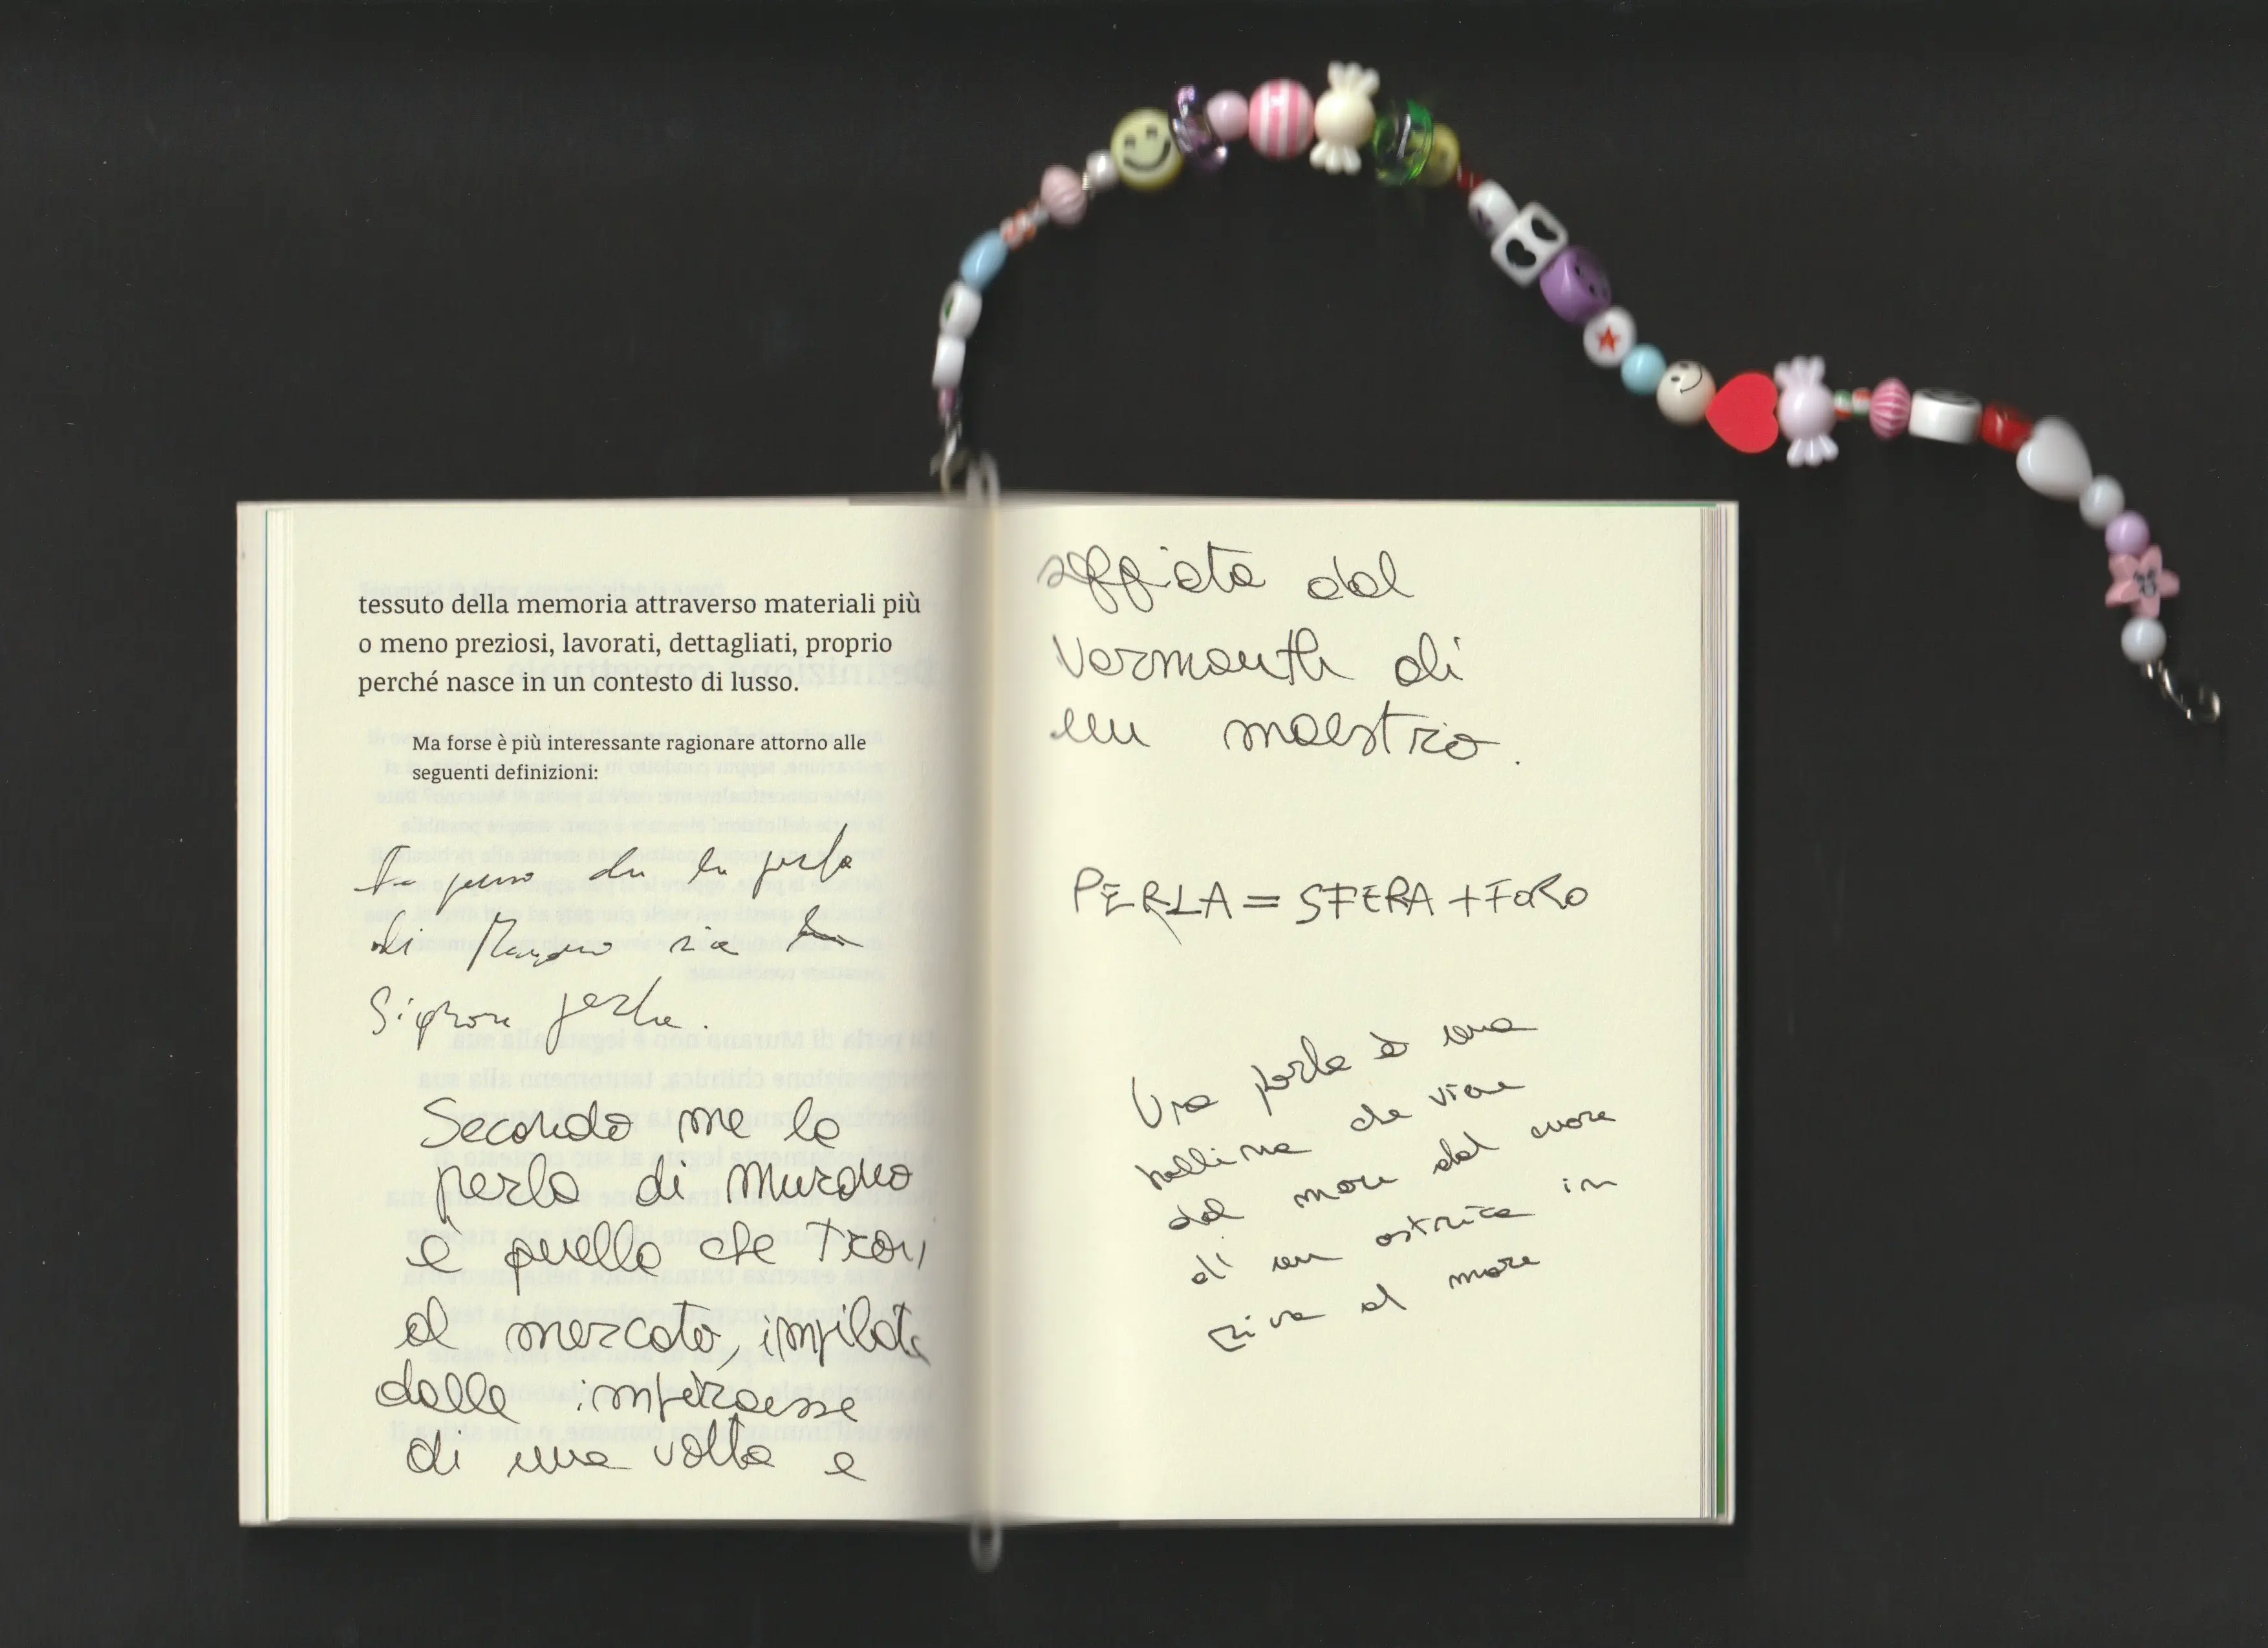 tessuto della memoria attraverso materiali più
o meno preziosi, lavorati, dettagliati, proprio
perché nasce in un contesto di lusso.
Ma forse è più interessante ragionare attorno alle
seguenti definizioni:
penso che la perla
di Murano sia la
Signora perla.
Secondo me la
perla di Murano
è quella che trovi
al mercato, impilata
dalle impiraesse
di una volta e
soffiata dal
Vermouth di
un maestro.
PERLA = SFERA + FORO
Una perla è una
pallina che viene
dal mare dal cuore
di un ostrica in
riva al mare